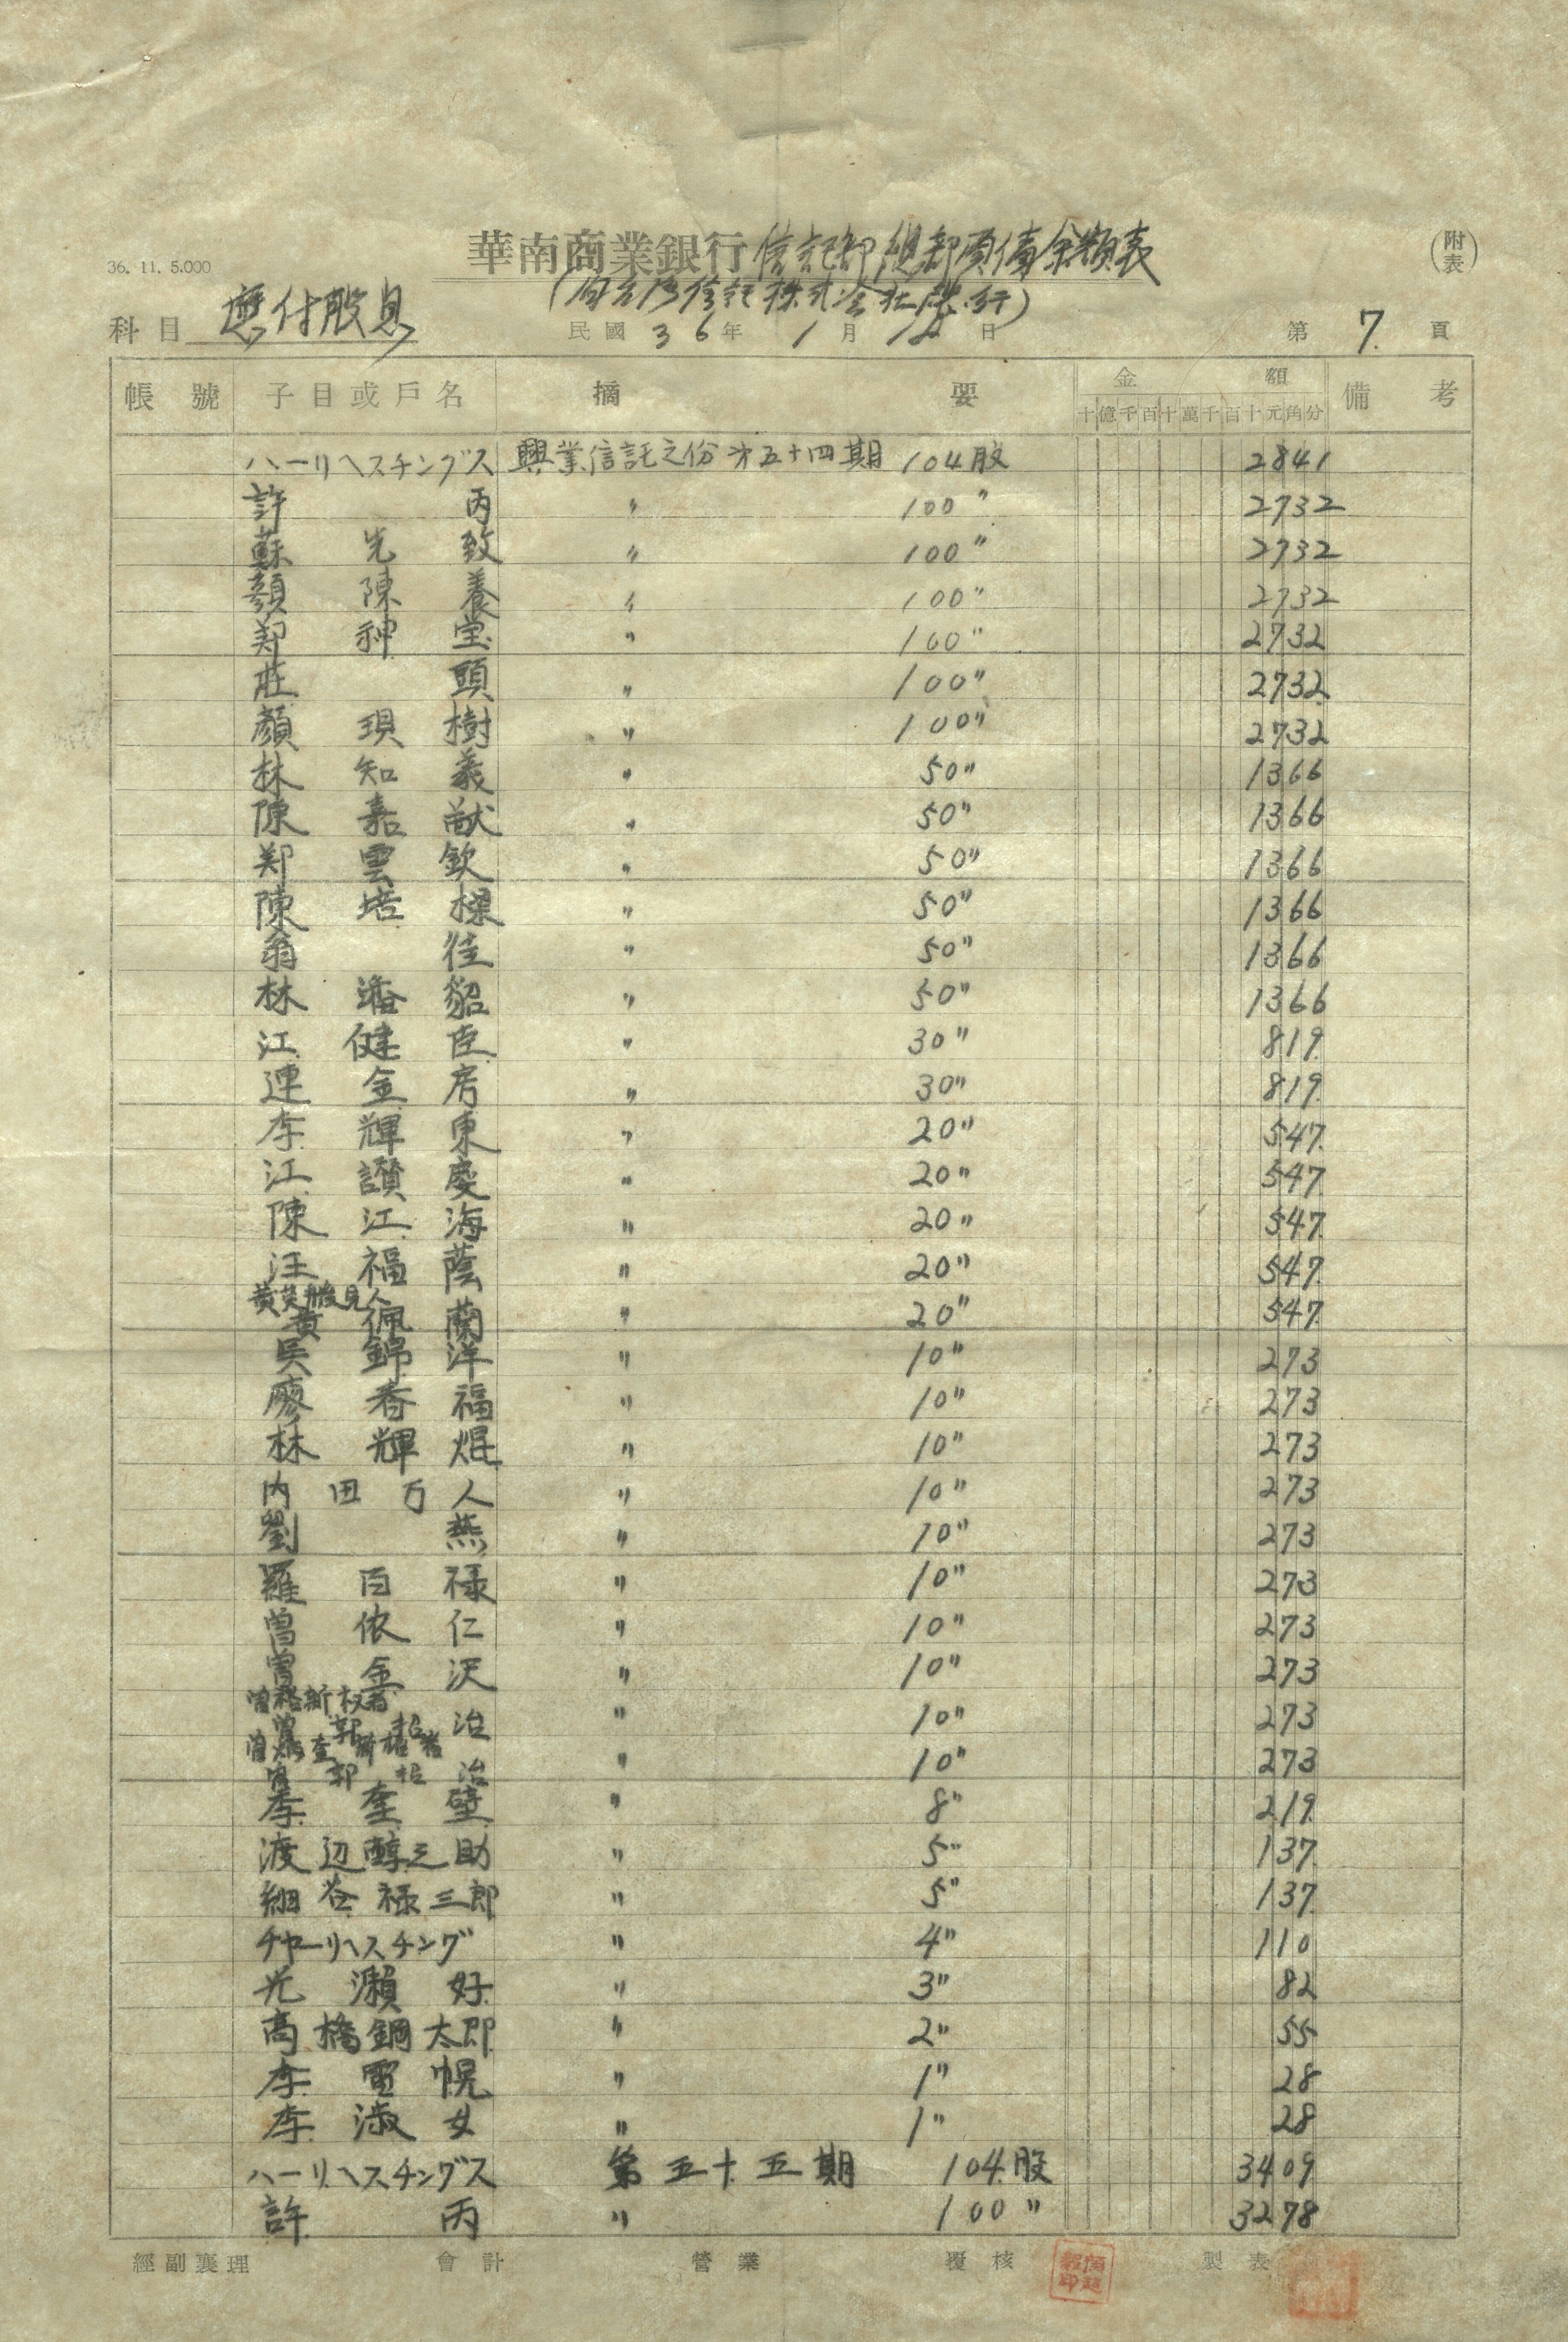 36. 11. 5.000
華南商業銀行信託部總部負債金額表
(附表)
科目 應付股息 民國36年1月 日 第7頁
帳號 子目或戶名 摘要 金額 備考
十億千百十萬千百十元角分
ハーリヘスチングス 興業信託之份 第五十四期 104股 2841
許丙 〃 100〃 2732
蘇光致 〃 100〃 2732
顏陳養 〃 100〃 2732
鄭神宝 〃 100〃 2732
莊頭 〃 100〃 2732
顏現樹 〃 100〃 2732
林知義 〃 50〃 1366
陳嘉猷 〃 50〃 1366
鄭雲欽 〃 50〃 1366
陳培樑 〃 50〃 1366
翁 〃 50〃 1366
林 貂 〃 50〃 1366
江健臣 〃 30〃 819
連金房 〃 30〃 819
李輝東 〃 20〃 547
江讚慶 〃 20〃 547
陳江海 〃 20〃 547
汪福蔭 〃 20〃 547
黃 後見人
黃佩蘭 〃 20〃 547
吳錦洋 〃 10〃 273
廖香福 〃 10〃 273
林輝焜 〃 10〃 273
内田万人 〃 10〃 273
劉燕 〃 10〃 273
羅百禄 〃 10〃 273
曾依仁 〃 10〃 273
曾金沢 〃 10〃 273
曾 親权者
曾郭招治 〃 10〃 273
曾 奎 親權者
曾郭招治 〃 10〃 273
李奎璧 〃 8〃 219
渡辺醇之助 〃 5〃 137
細谷禄三郎 〃 5〃 137
チヤーリヘスチング 〃 4〃 110
光瀨好 〃 3〃 82
高橋鋼太郎 〃 2〃 55
李電幌 〃 1〃 28
李淑女 〃 1〃 28
ハーリヘスチングス 第五十五期 104股 3409
許丙 〃 100〃 3278
經副襄理 會計 營業 覆核 製表